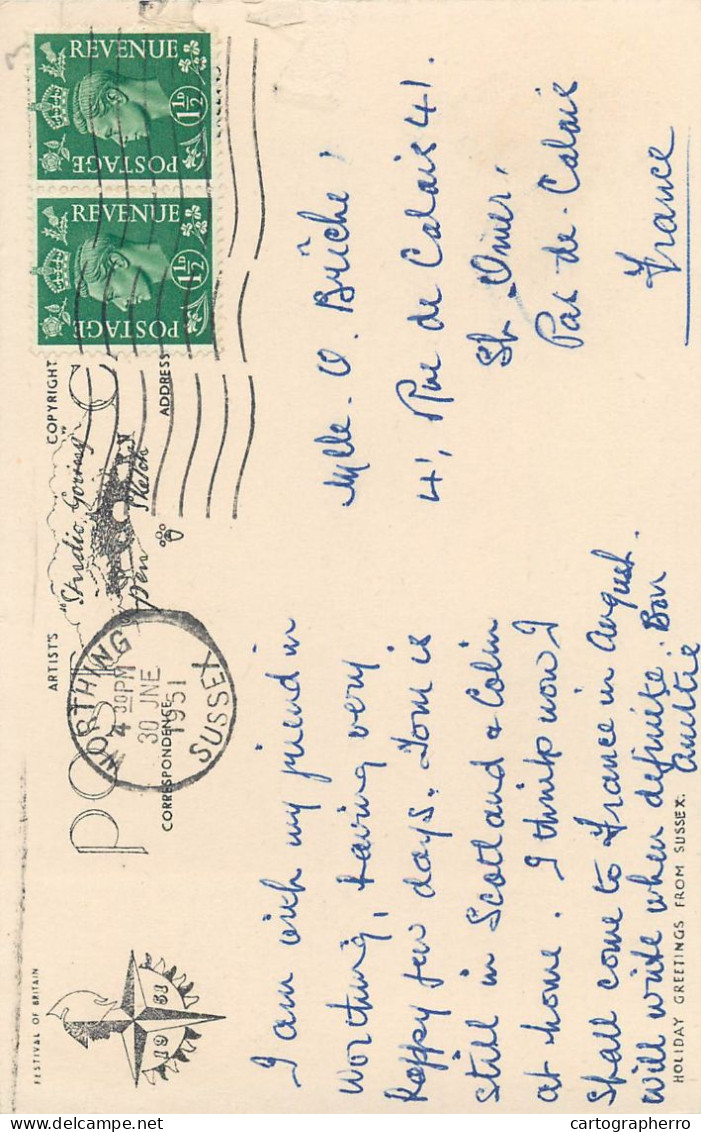 FESTIVAL OF BRITAIN
19 51
ARTIST'S COPYRIGHT
"Studio Goring"
Pen Sketch
CORRESPONDENCE
ADDRESS
WORTHING
4 30 PM
30 JNE
1951
SUSSEX
REVENUE
1½D
POSTAGE
REVENUE
1½D
POSTAGE
I am with my friend in
Worthing, having very
happy few days. Tom is
still in Scotland & Colin
at home. I think now I
shall come to France in August.
will write when definite. Bon
Amitié
HOLIDAY GREETINGS FROM SUSSEX.
Mlle. O. Briche,
41, Rue de Calais 41.
St. Omer,
Pas-de-Calais
France
cartographerro